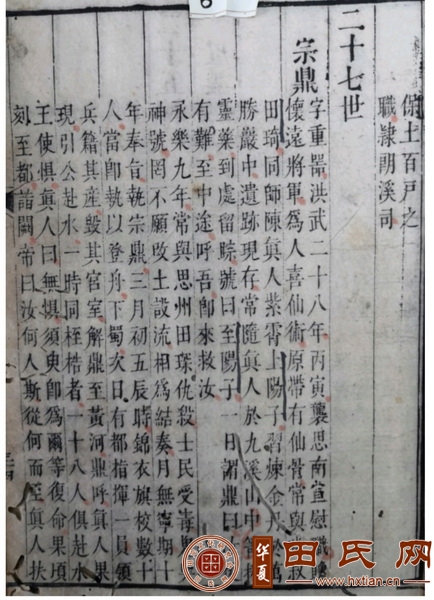 6
保土百戶之
職隸朗溪司
二十七世
宗鼎
字重器洪武二十八年丙寅襲思南宣慰職
懷遠將軍為人喜仙術原帶有仙骨常與叔
田琦同師陳真人紫霄上陽子習煉金丹
勝巖中遺跡現存常隨真人於九溪山中
靈藥到處留踪號曰至陽子一日謂鼎曰
有難至中途呼吾卽來救汝
永樂九年常與思州田琛仇殺士民受毒
神號罔不願改土設流相為結奏月無寧期十
年奉旨執宗鼎三月初五辰時錦衣旗校數十
人當卽執以登舟下蜀次日有都指揮一員領
兵籍其產毀其官室解鼎至黃河鼎呼真人果
現引公赴水一時同桎梏者一十八人俱赴水
王使懼真人曰無懼須臾卽為爾等復命果頃
刻至都詣闕帝曰汝何人斯從何而至真人扶
华夏
田氏网
www.hxtian.cn